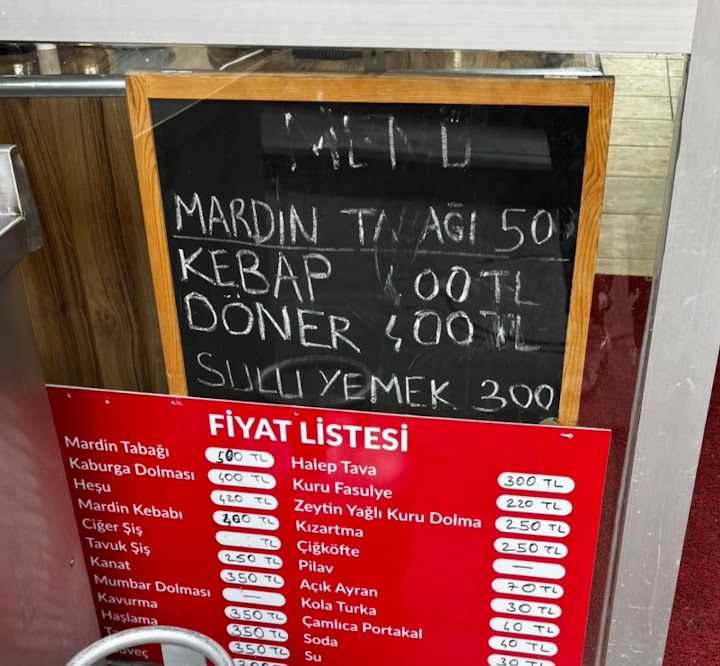 MENÜ
MARDİN TABAĞI 50
KEBAP 400 TL
DÖNER 400 TL
SULU YEMEK 300
FİYAT LİSTESİ
Mardin Tabağı 500 TL
Kaburga Dolması 400 TL
Heşu 420 TL
Mardin Kebabı TL
Ciğer Şiş TL
Tavuk Şiş 250 TL
Kanat 350 TL
Mumbar Dolması —
Kavurma 350 TL
Haşlama 350 TL
350 TL
Halep Tava 300 TL
Kuru Fasulye 220 TL
Zeytin Yağlı Kuru Dolma 250 TL
Kızartma 250 TL
Çiğköfte —
Pilav 70 TL
Açık Ayran 30 TL
Kola Turka 40 TL
Çamlıca Portakal 40 TL
Soda 30 TL
Su